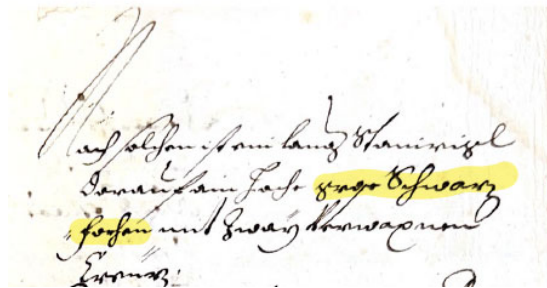 Nach solchen ist ein lang Stainrigl
darauf ain hoche grose Schwarz
fochen mit Zway Verwaxnen
Creuz: